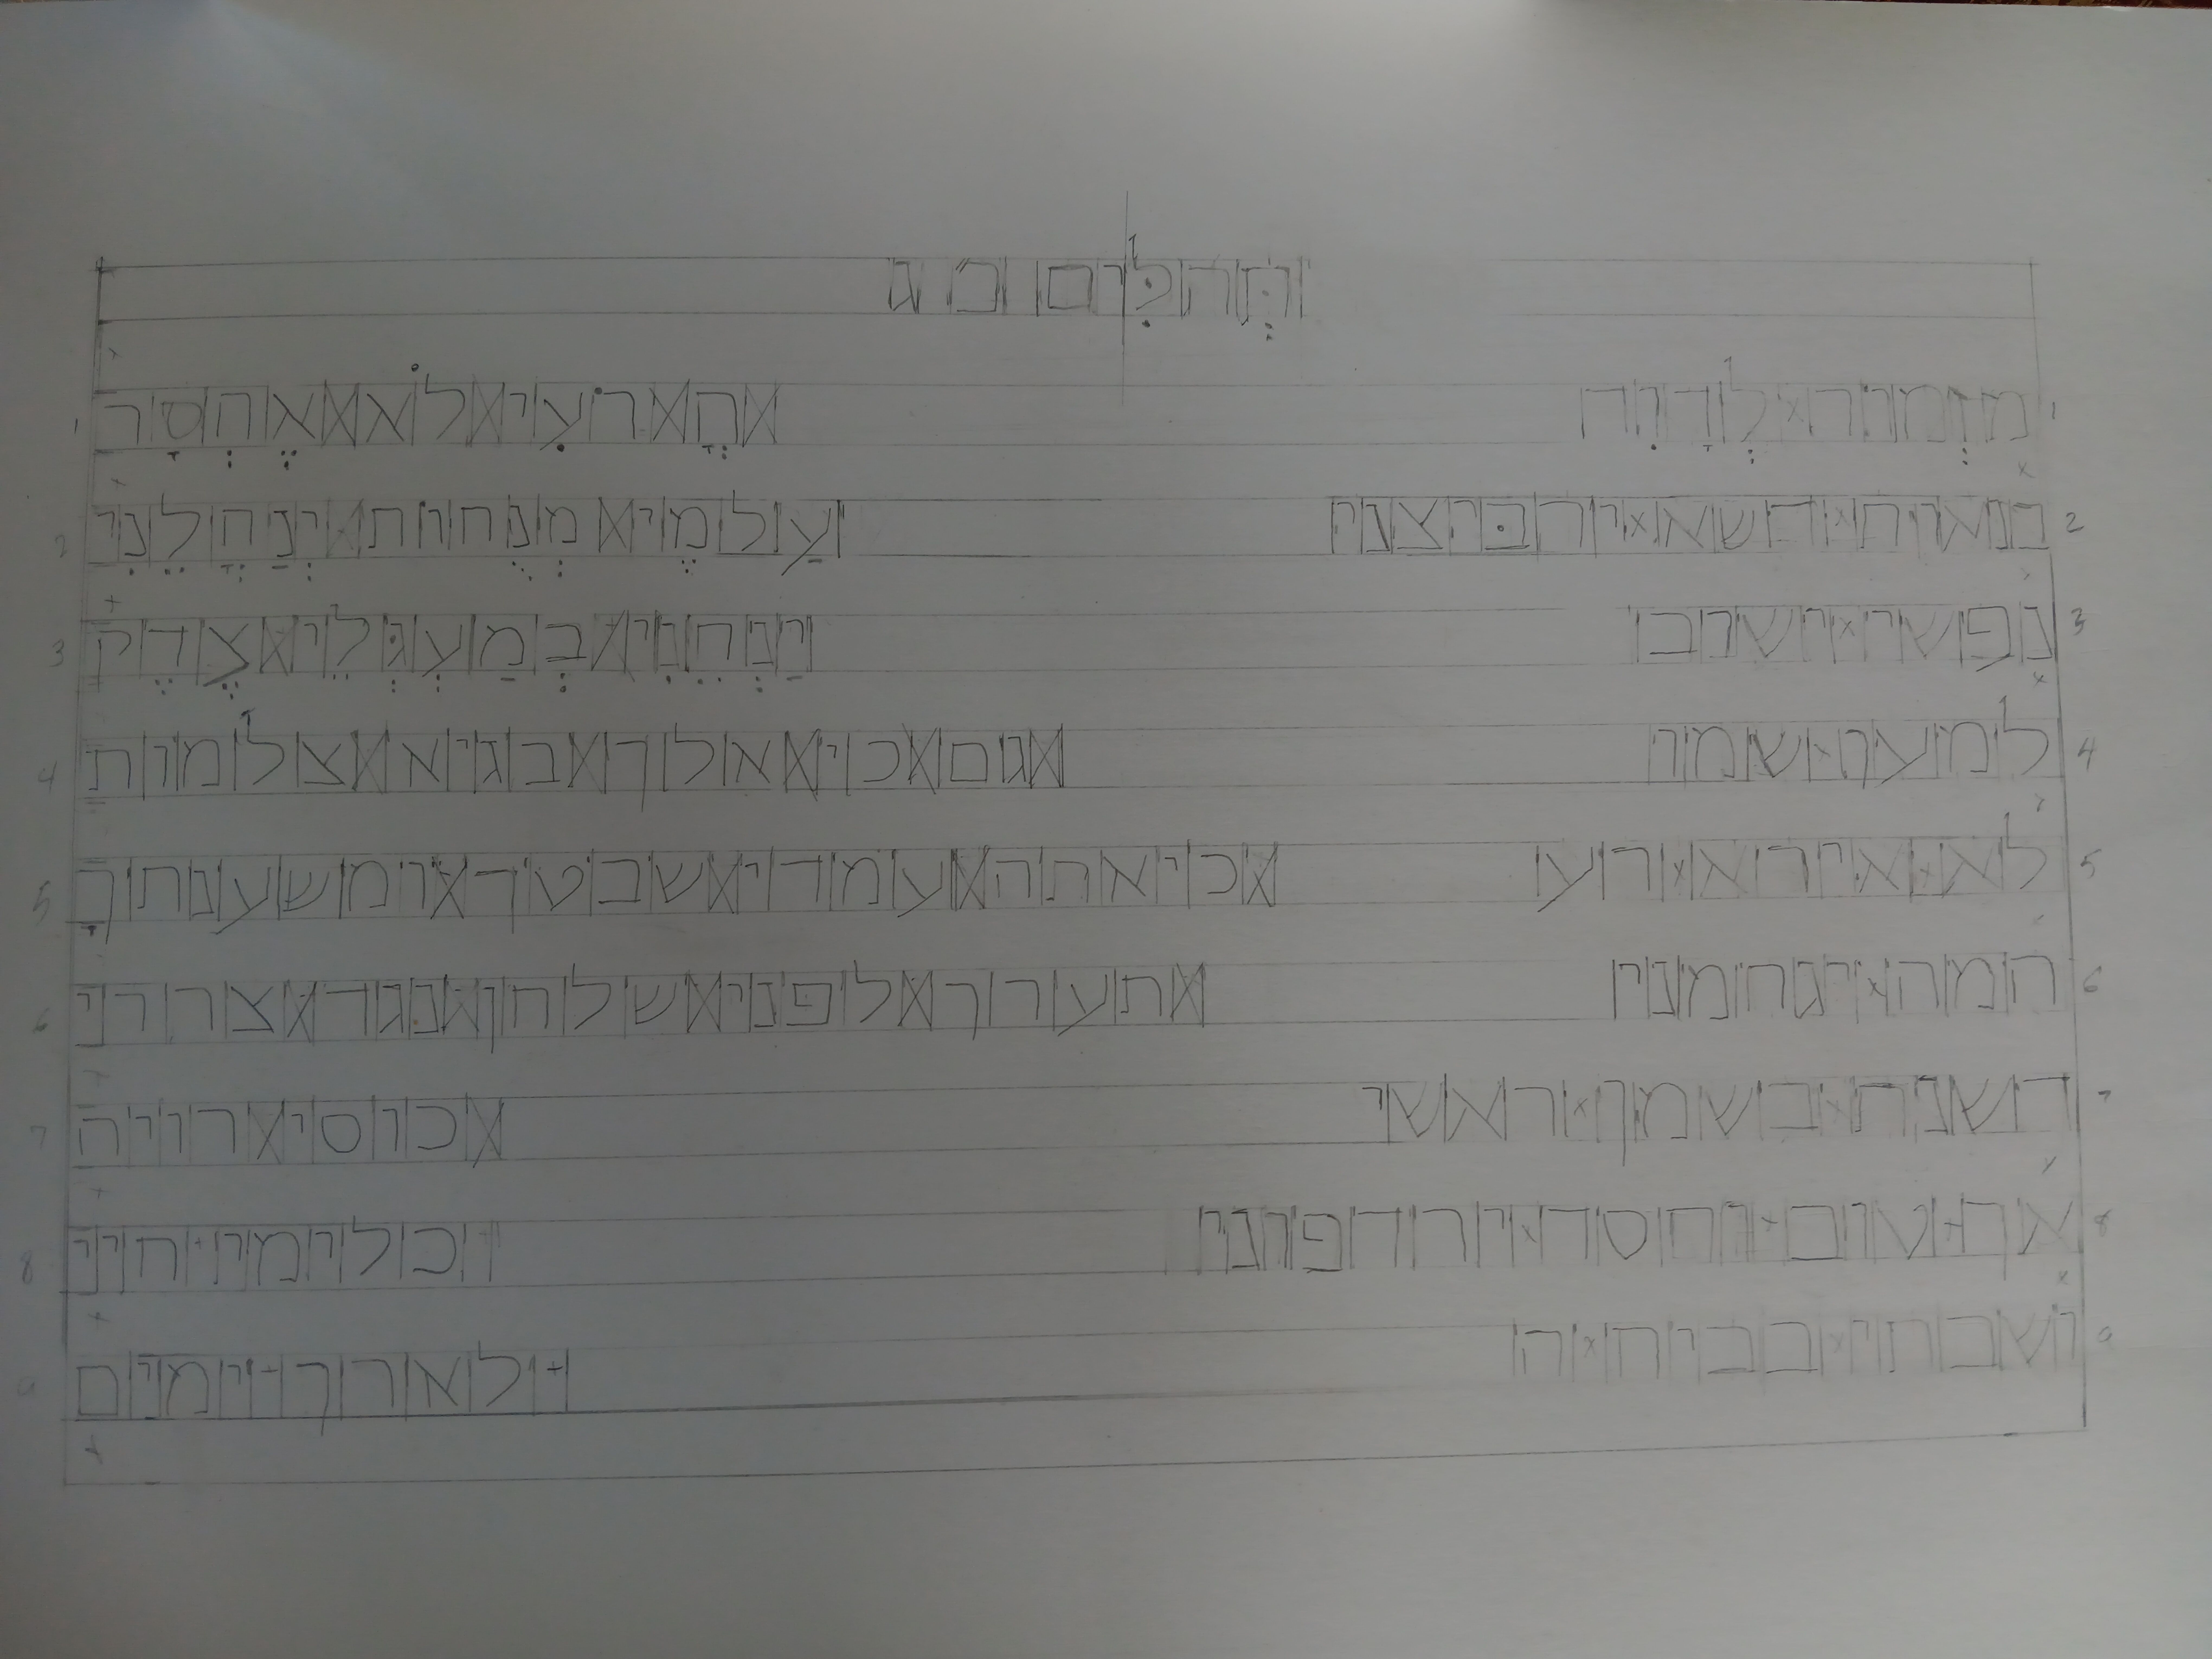 תהלים כ ג
1 מזמור לדוד ה רעי לא אחסר 1
2 בנאות דשא ירביצני ועל מי מנחות ינהלני 2
3 נפשי ישוב ינחני במעגלי צדק 3
4 למען שמו גם כי אלך בגיא צלמות 4
5 לא אירא רע כי אתה עמדי שבטך ומשענתך 5
6 המה ינחמני תערך לפני שלחן נגד צררי 6
7 דשנת בשמן ראשי כוסי רויה 7
8 אך טוב וחסד ירדפוני כל ימי חיי 8
9 ושבתי בבית ה לארך ימים 9